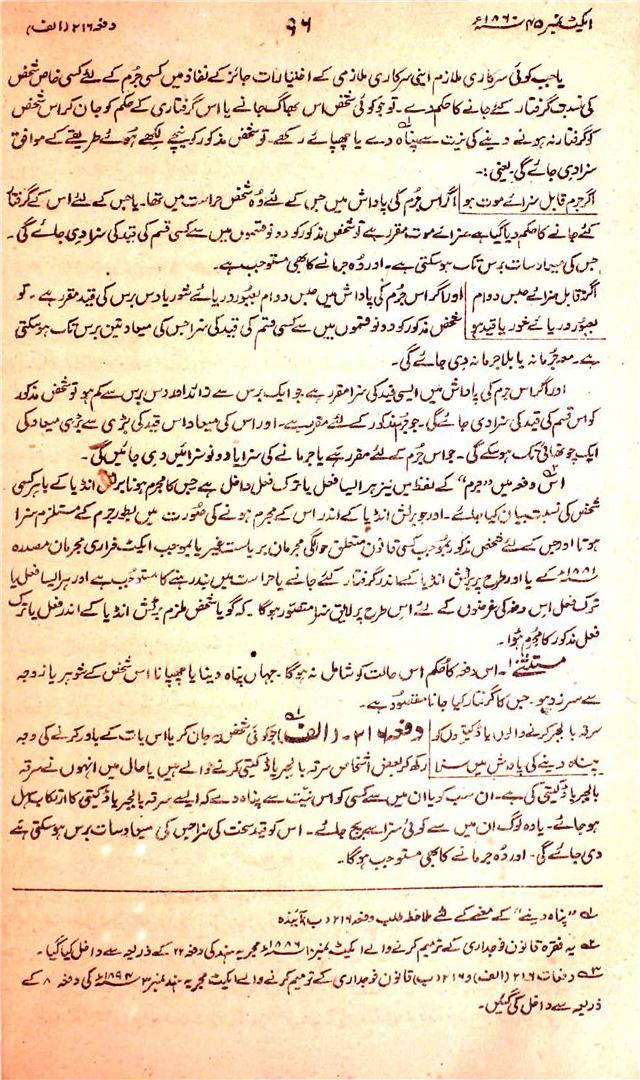 ایکٹ نمبر ۴۵ ۱۸۶۰ء
۹۶
دفعہ ۲۱۶ (الف)
یا جب کوئی سرکاری ملازم اپنی سرکاری ملازمی کے اختیارات جائز کے نفاذ میں کسی جرم کے لئے کسی خاص شخص
کی نسبت گرفتار کئے جانے کا حکم دے۔ تو جو کوئی شخص اس بھاگ جانے یا اس گرفتاری کے حکم کو جان کر اس شخص
کو گرفتار نہ ہونے دینے کی نیت سے پناہ دے یا چھپائے رکھے۔ تو شخص مذکور کو نیچے لکھے ہوئے طریقے کے موافق
سزا دی جائے گی یعنی :۔
اگر جرم قابل سزائے موت ہو
اگر اس جرم کی پاداش میں جس کے لئے وہ شخص حراست میں تھا۔ یا جس کے لئے اس کے گرفتار
کئے جانے کا حکم دیا گیا ہے سزائے موت مقرر ہے تو شخص مذکور کو دونوں قسموں میں سے کسی قسم کی قید کی سزا دی جائے گی۔
جس کی میعاد سات برس تک ہو سکتی ہے۔ اور وہ جرمانے کا بھی مستوجب ہے۔
اگر قابل سزائے حبس دوام
بعبور دریائے شور یا قید ہو
اور اگر اس جرم کی پاداش میں حبس دوام بعبور دریائے شور یا دس برس کی قید مقرر ہے۔ تو
شخص مذکور کو دونوں قسموں میں سے کسی قسم کی قید کی سزا جس کی میعاد تین برس تک ہو سکتی
ہے۔ معہ جرمانہ یا بلا جرمانہ دی جائے گی۔
اور اگر اس جرم کی پاداش میں ایسی قید کی سزا مقرر ہے جو ایک برس سے زائد اور دس برس سے کم ہو تو شخص مذکور
کو اس قسم کی قید کی سزا دی جائے گی۔ جو جرم مذکور کے لئے مقرر ہے۔ اور اس کی میعاد اس قید کی بڑی سے بڑی میعاد کی
ایک چوتھائی تک ہو سکے گی۔ جو اس جرم کے لئے مقرر ہے یا جرمانے کی سزا یا دونوں سزائیں دی جائیں گی۔
اس دفعہ میں "جرم" کے لفظ میں نیز ہر ایسا فعل یا ترک فعل داخل ہے جس کا مجرم ہونا برٹش انڈیا کے باہر کسی
شخص کی نسبت بیان کیا جائے۔ اور جو برٹش انڈیا کے اندر اس کے مجرم ہونے کی صورت میں بطور جرم کے مستلزم سزا
ہوتا اور جس کے لئے شخص مذکور بموجب کسی قانون متعلق حوالگی مجرمان بریاست غیر یا بموجب ایکٹ فراری مجرمان مصدرہ
۱۸۸۱ء کے یا اور طرح پر برٹش انڈیا کے اندر گرفتار کئے جانے یا حراست میں بند رہنے کا مستوجب ہے اور ہر ایسا فعل یا
ترک فعل اس دفعہ کی غرضوں کے لئے اس طرح پر لایق سزا متصور ہوگا۔ کہ گویا شخص ملزم برٹش انڈیا کے اندر فعل یا ترک
فعل مذکور کا مجرم ہوا۔
مستثنیٰ۔ اس دفعہ کا حکم اس حالت کو شامل نہ ہوگا۔ جہاں پناہ دینا یا چھپانا اس شخص کے شوہر یا زوجہ
سے سرزد ہو۔ جس کا گرفتار کیا جانا مقصود ہے۔
سرقہ بالجبر کرنے والوں یا ڈکیتوں کو
پناہ دینے کی پاداش میں سزا
دفعہ ۲۱۶۔ (الف) جو کوئی شخص یہ جان کر یا اس بات کے باور کرنے کی وجہ
رکھ کر بعض اشخاص سرقہ بالجبر یا ڈکیتی کرنے والے ہیں یا حال میں انہوں نے سرقہ
بالجبر یا ڈکیتی کی ہے۔ ان سب کو یا ان میں سے کسی کو اس نیت سے پناہ دے کہ ایسے سرقہ بالجبر یا ڈکیتی کا ارتکاب سہل
ہو جائے۔ یا وہ لوگ ان میں سے کوئی سزا سے بچ جائے۔ اس کو قید سخت کی سزا جس کی میعاد سات برس ہو سکتی ہے
دی جائے گی۔ اور وہ جرمانے کا بھی مستوجب ہوگا۔
۱؎ "پناہ دینے" کے معنے کے لئے ملاحظہ طلب دفعہ ۲۱۶ (ب) آیندہ
۲؎ یہ فقرہ قانون فوجداری کے ترمیم کرنے والے ایکٹ نمبر ۱۰ ۱۸۸۶ء مجریہ ہند کی دفعہ ۲۳ کے ذریعہ سے داخل کیا گیا۔
۳؎ دفعات ۲۱۶ (الف) و ۲۱۶ (ب) قانون فوجداری کے ترمیم کرنے والے ایکٹ مجریہ ہند نمبر ۳ ۱۸۹۴ء کی دفعہ ۸ کے
ذریعہ سے داخل کی گئیں۔